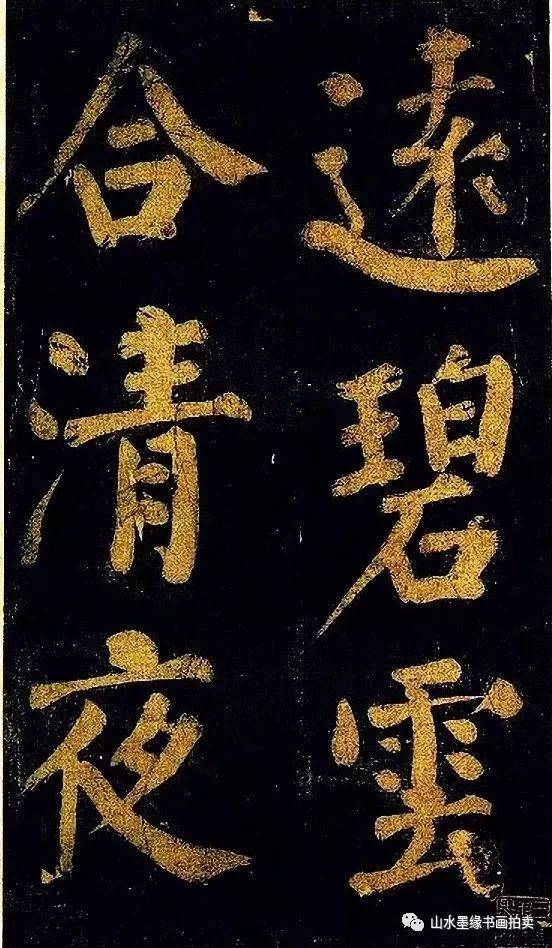 遠碧雲
合清夜
山水墨缘书画拍卖